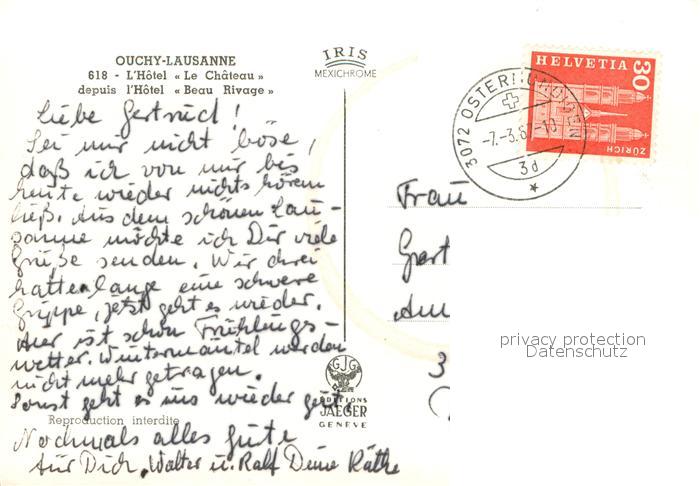 OUCHY-LAUSANNE
618 - L'Hôtel « Le Château »
depuis l'Hôtel « Beau Rivage »
IRIS
MEXICHROME
HELVETIA
30
ZÜRICH
3072 OSTERMUNDIGEN
-7.-3.67-10
3d
Liebe Gertrud!
Sei mir nicht böse,
daß ich von mir bis
heute wieder nichts hören
ließ. Aus dem schönen Lau-
sanne möchte ich Dir viele
Grüße senden. Wir drei
hatten lange eine schwere
Grippe, jetzt geht es wieder.
Hier ist schon Frühlings-
wetter. Wintermäntel werden
nicht mehr getragen.
Sonst geht es uns wieder gut.
Nochmals alles Gute
für Dich, Walter u. Ralf Deine Käthe
Frau
Gert
Am
3
privacy protection
Datenschutz
GJG
EDITIONS
JAEGER
GENÈVE
Reproduction interdite